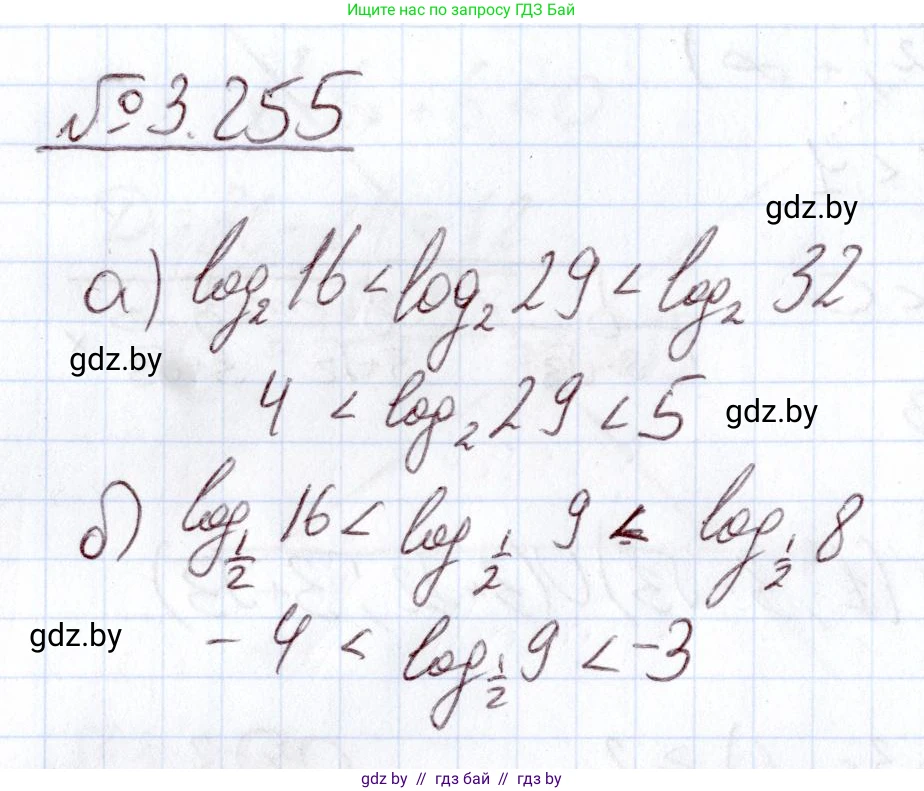 Ищите нас по запросу ГДЗ Бай
№ 3.255
gdz.by
а) log₂ 16 < log₂ 29 < log₂ 32
gdz.by
4 < log₂ 29 < 5 gdz.by
б) log_{1/2} 16 < log_{1/2} 9 < log_{1/2} 8
gdz.by
-4 < log_{1/2} 9 < -3
gdz by // гдз бай // gdz by